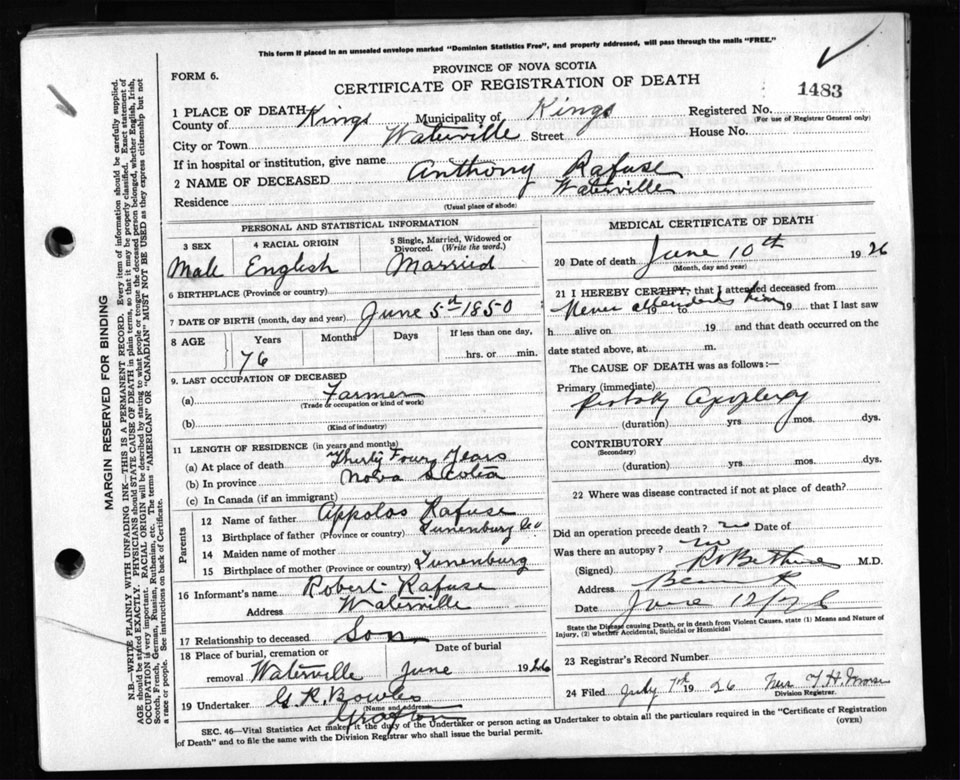 This form if placed in an unsealed envelope marked "Dominion Statistics Free", and properly addressed, will pass through the mails "FREE."
FORM 6.
PROVINCE OF NOVA SCOTIA
CERTIFICATE OF REGISTRATION OF DEATH
1483
1 PLACE OF DEATH
County of Kings Municipality of Kings Registered No.
(For use of Registrar General only)
City or Town Waterville Street House No.
If in hospital or institution, give name
2 NAME OF DECEASED Anthony Rafuse
Residence Waterville
(Usual place of abode)
PERSONAL AND STATISTICAL INFORMATION
3 SEX 4 RACIAL ORIGIN 5 Single, Married, Widowed or Divorced. (Write the word.)
Male English Married
6 BIRTHPLACE (Province or country)
7 DATE OF BIRTH (month, day and year) June 5th 1850
8 AGE Years Months Days If less than one day,
76 hrs. or min.
9. LAST OCCUPATION OF DECEASED
(a) Farmer
(Trade or occupation or kind of work)
(b)
(Kind of industry)
11 LENGTH OF RESIDENCE (in years and months)
(a) At place of death Thirty Four Years
(b) In province Nova Scotia
(c) In Canada (if an immigrant)
Parents
12 Name of father Appolos Rafuse
13 Birthplace of father (Province or country) Lunenburg Co
14 Maiden name of mother
15 Birthplace of mother (Province or country) Lunenburg
16 Informant's name Robert Rafuse
Address Waterville
17 Relationship to deceased Son
18 Place of burial, cremation or removal Date of burial
Waterville June 1926
19 Undertaker G. R. Bowles
(Name and address)
Grafton
MEDICAL CERTIFICATE OF DEATH
20 Date of death June 10th 1926
(Month, day and year)
21 I HEREBY CERTIFY, that I attended deceased from
Never attended him 19 to 19 that I last saw
h alive on 19 and that death occurred on the
date stated above, at m.
The CAUSE OF DEATH was as follows:—
Primary (immediate)
Probably Apoplexy
(duration) yrs mos. dys.
CONTRIBUTORY
(Secondary)
(duration) yrs mos. dys.
22 Where was disease contracted if not at place of death?
Did an operation precede death? no Date of
Was there an autopsy? no
(Signed) M.D.
Address
Date June 12/26
State the Disease causing Death, or in death from Violent Causes, state (1) Means and Nature of
Injury, (2) whether Accidental, Suicidal or Homicidal
23 Registrar's Record Number
24 Filed July 7th 1926 T. H. Morse
Division Registrar.
SEC. 46—Vital Statistics Act makes it the duty of the Undertaker or person acting as Undertaker to obtain all the particulars required in the "Certificate of Registration
of Death" and to file the same with the Division Registrar who shall issue the burial permit.
(OVER)
MARGIN RESERVED FOR BINDING
N.B.—WRITE PLAINLY WITH UNFADING INK—THIS IS A PERMANENT RECORD. Every item of information should be carefully supplied.
AGE should be stated EXACTLY. PHYSICIANS should STATE CAUSE OF DEATH in plain terms, so that it may be properly classified. Exact statement of
OCCUPATION is very important. RACIAL ORIGIN will be described by stating to what people or tongue the deceased person belonged, whether English, Irish,
Scotch, French, German, Russian, Ruthenian, etc. The terms "AMERICAN" or "CANADIAN" MUST NOT BE USED as they express citizenship but not
a race or people. See instructions on back of Certificate.